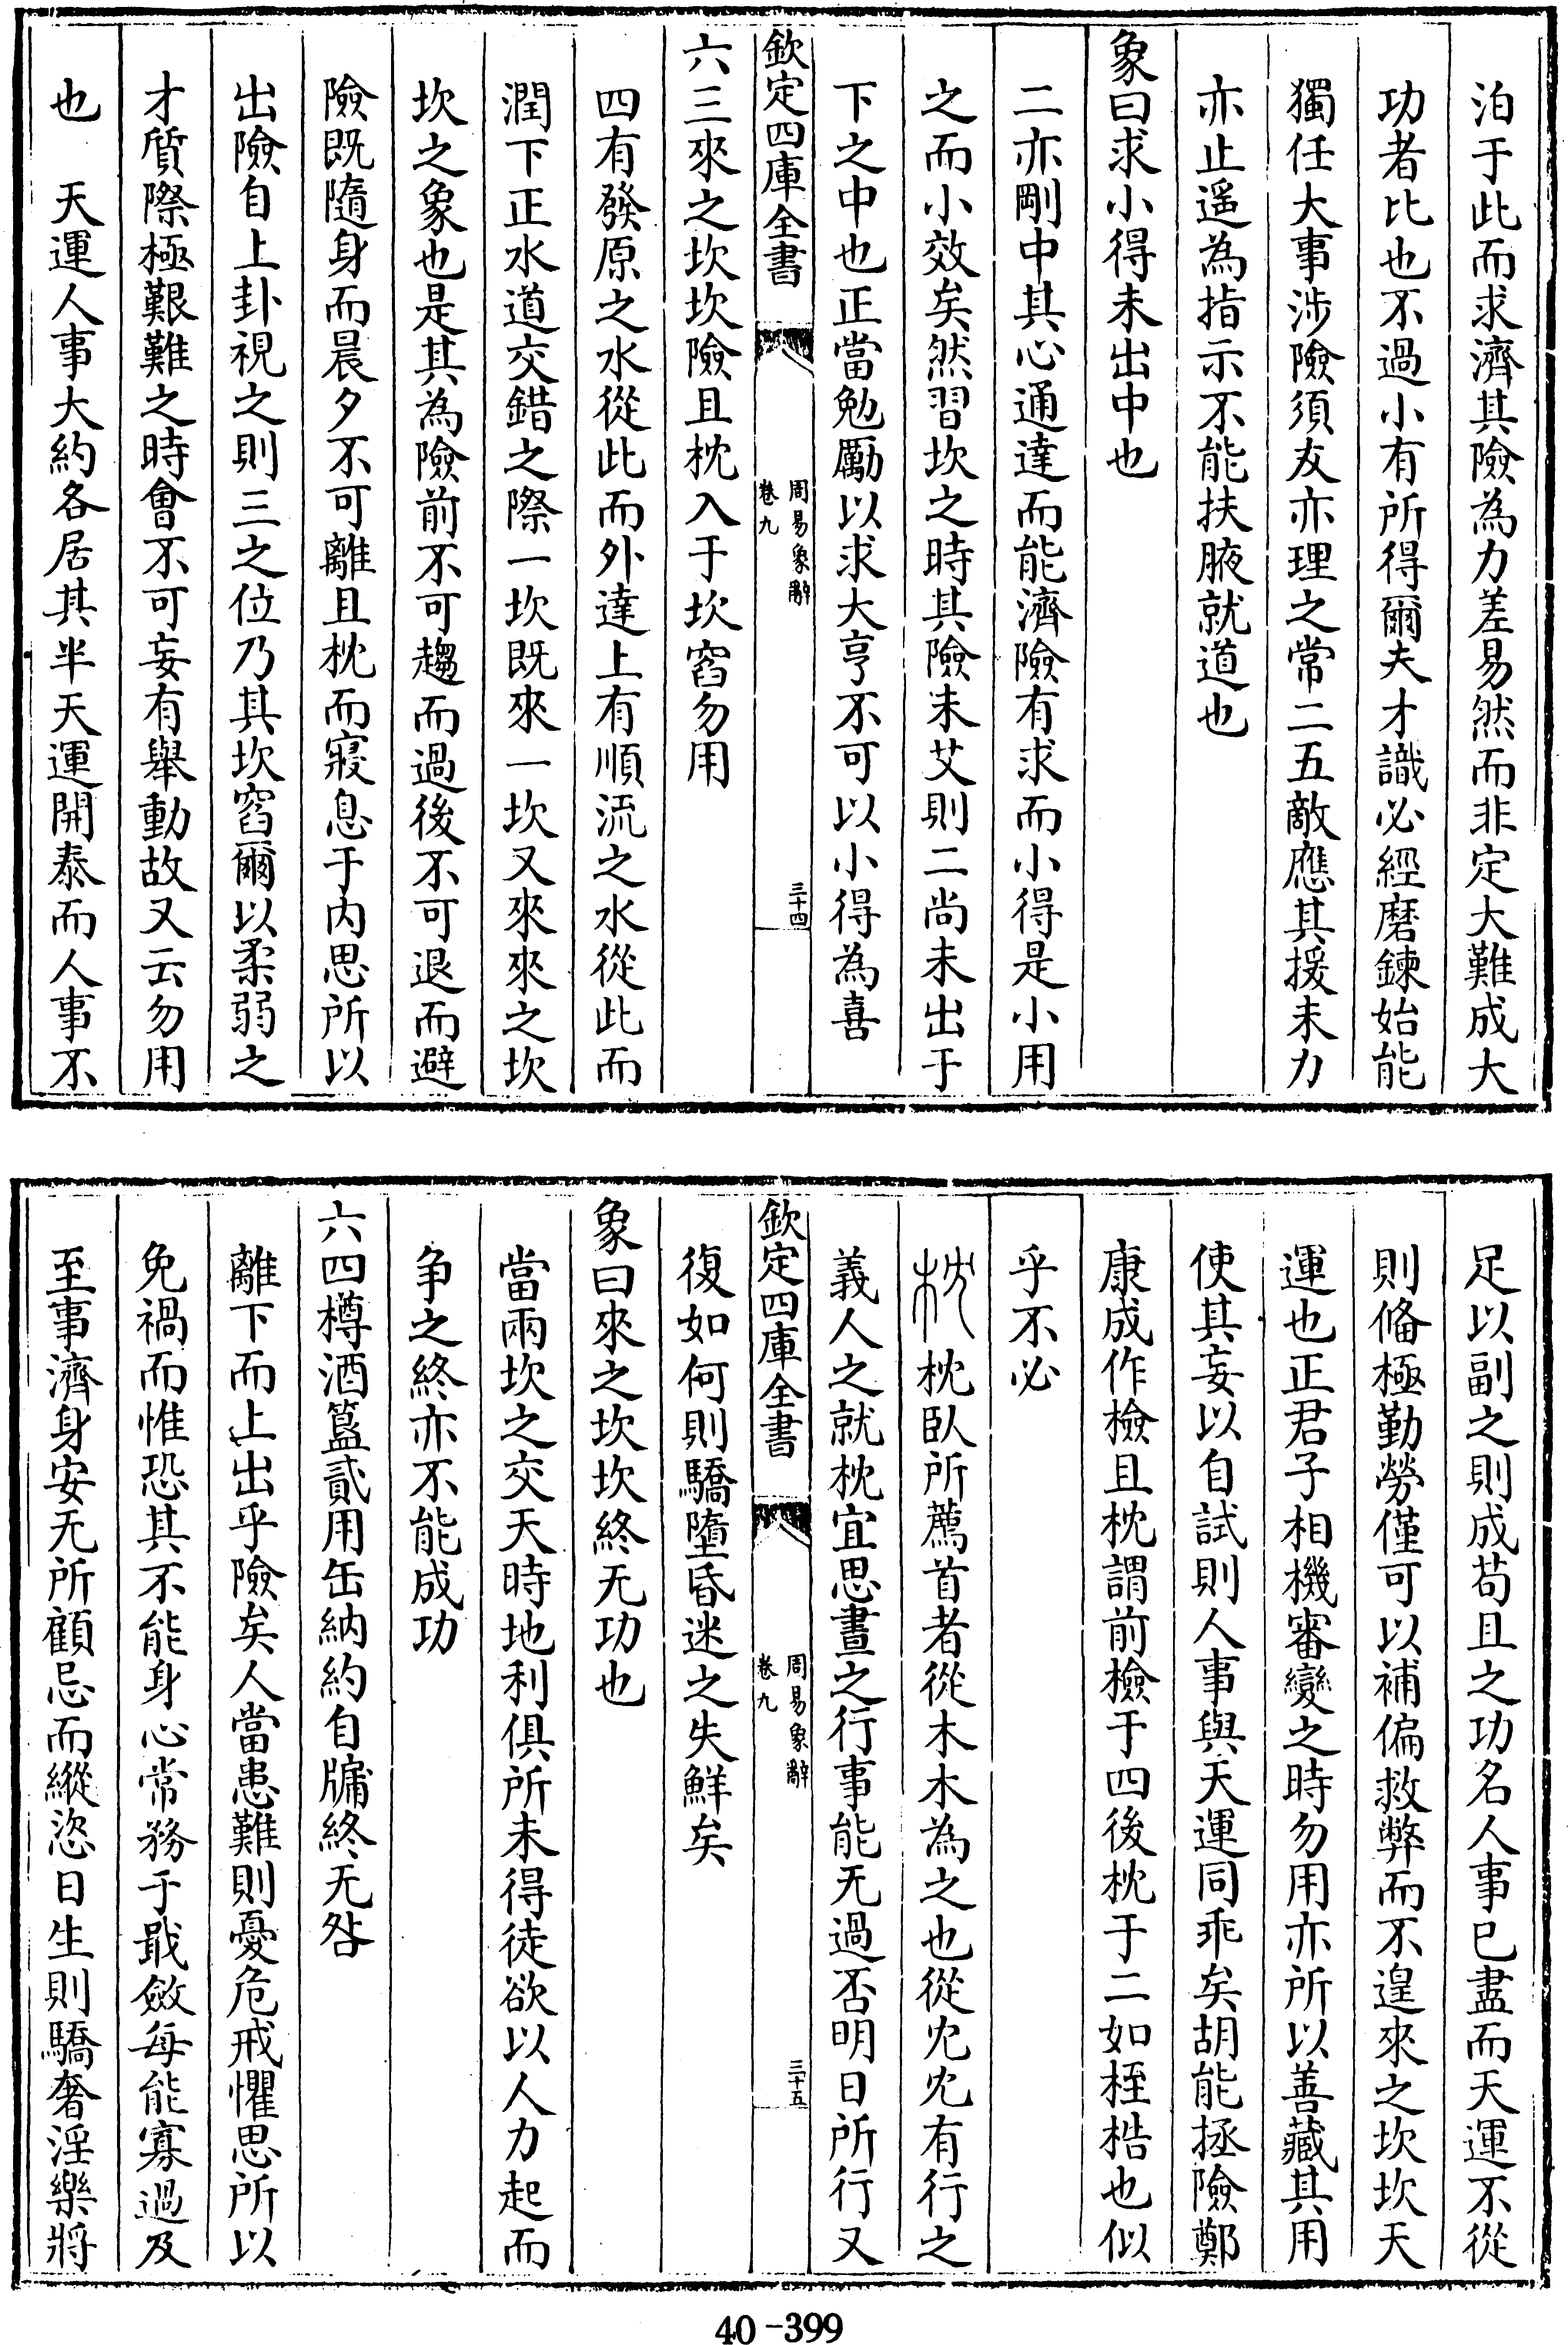 泊于此而求濟其險為力差易然而非定大難成大
功者比也不過小有所得爾夫才識必經磨鍊始能
獨任大事涉險須友亦理之常二五敵應其援未力
亦止遥為指示不能扶腋就道也
象曰求小得未出中也
二亦剛中其心通達而能濟險有求而小得是小用
之而小效矣然習坎之時其險未艾則二尚未出于
下之中也正當勉勵以求大亨不可以小得為喜
欽定四庫全書
周易象辭
卷九
三十四
六三來之坎坎險且枕入于坎窞勿用
四有發原之水從此而外達上有順流之水從此而
潤下正水道交錯之際一坎既來一坎又來來之坎
坎之象也是其為險前不可趨而過後不可退而避
險既隨身而晨夕不可離且枕而寢息于内思所以
出險自上卦視之則三之位乃其坎窞爾以柔弱之
才質際極艱難之時會不可妄有舉動故又云勿用
也　天運人事大約各居其半天運開泰而人事不
足以副之則成苟且之功名人事已盡而天運不從
則偹極勤勞僅可以補偏救弊而不遑來之坎坎天
運也正君子相機審變之時勿用亦所以善藏其用
使其妄以自試則人事與天運同乖矣胡能拯險鄭
康成作檢且枕謂前檢于四後枕于二如桎梏也似
乎不必
枕枕臥所薦首者從木木為之也從冘冘有行之
義人之就枕宜思晝之行事能无過否明日所行又
欽定四庫全書
周易象辭
卷九
三十五
復如何則驕墮昏迷之失鮮矣
象曰來之坎坎終无功也
當兩坎之交天時地利俱所未得徒欲以人力起而
争之終亦不能成功
六四樽酒簋貳用缶納約自牖終无咎
離下而上出乎險矣人當患難則憂危戒懼思所以
免禍而惟恐其不能身心常務于戢斂每能寡過及
至事濟身安无所顧忌而縱恣日生則驕奢淫樂將
40-399